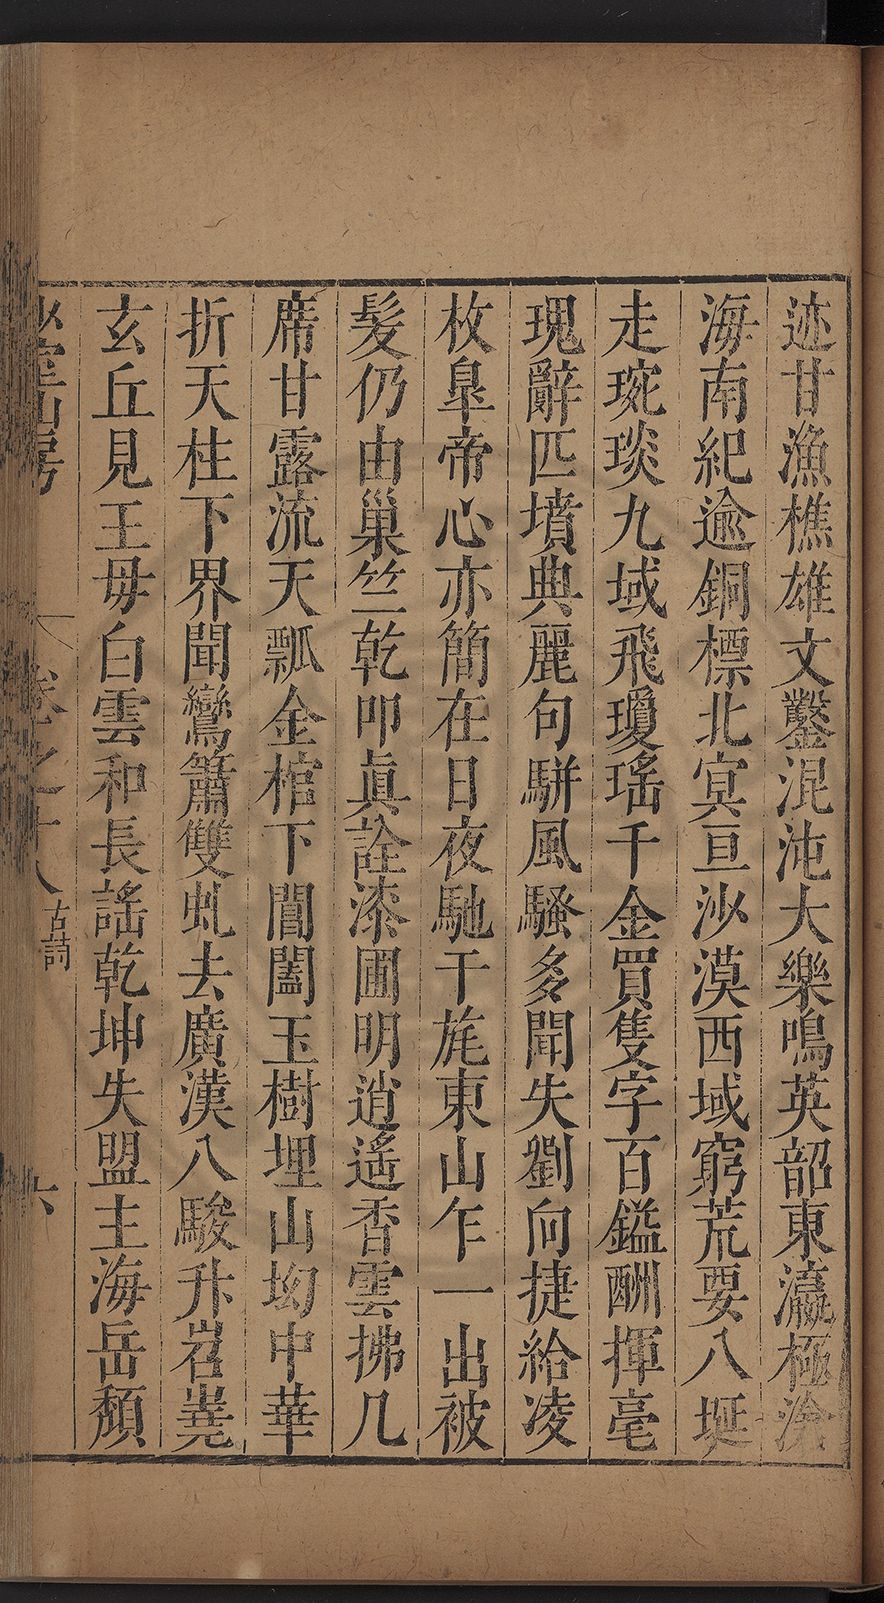 迹甘漁樵雄文鑿混沌大樂鳴英韶東瀛極滄
海南紀逾銅標北㝠亘沙漠西域窮荒要八埏
走琬琰九域飛瓊瑤千金買隻字百鎰酬揮毫
瑰辭匹墳典麗句駢風騷多聞失劉向捷給凌
枚臯帝心亦簡在日夜馳干旄東山乍一出被
髮仍由巢竺乾叩眞詮漆園明逍遙香雲拂几
席甘露流天瓢金棺下閶闔玉樹埋山坳中華
折天柱下界聞鸞簫雙虬去廣漢八駿升岧嶤
玄丘見王母白雲和長謠乾坤失盟主海岳頹
山房
卷之十八
古詩
六